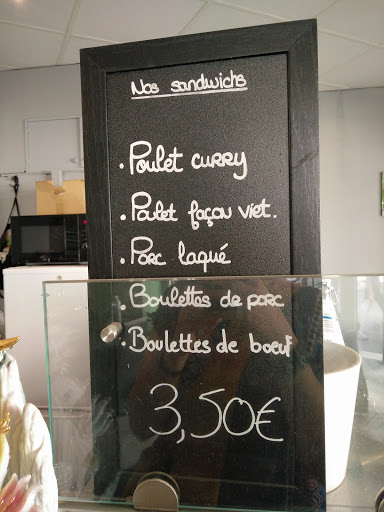 Nos sandwichs
• Poulet curry
• Poulet façon viet.
• Porc laqué
• Boulettes de porc
• Boulettes de boeuf
3,50€